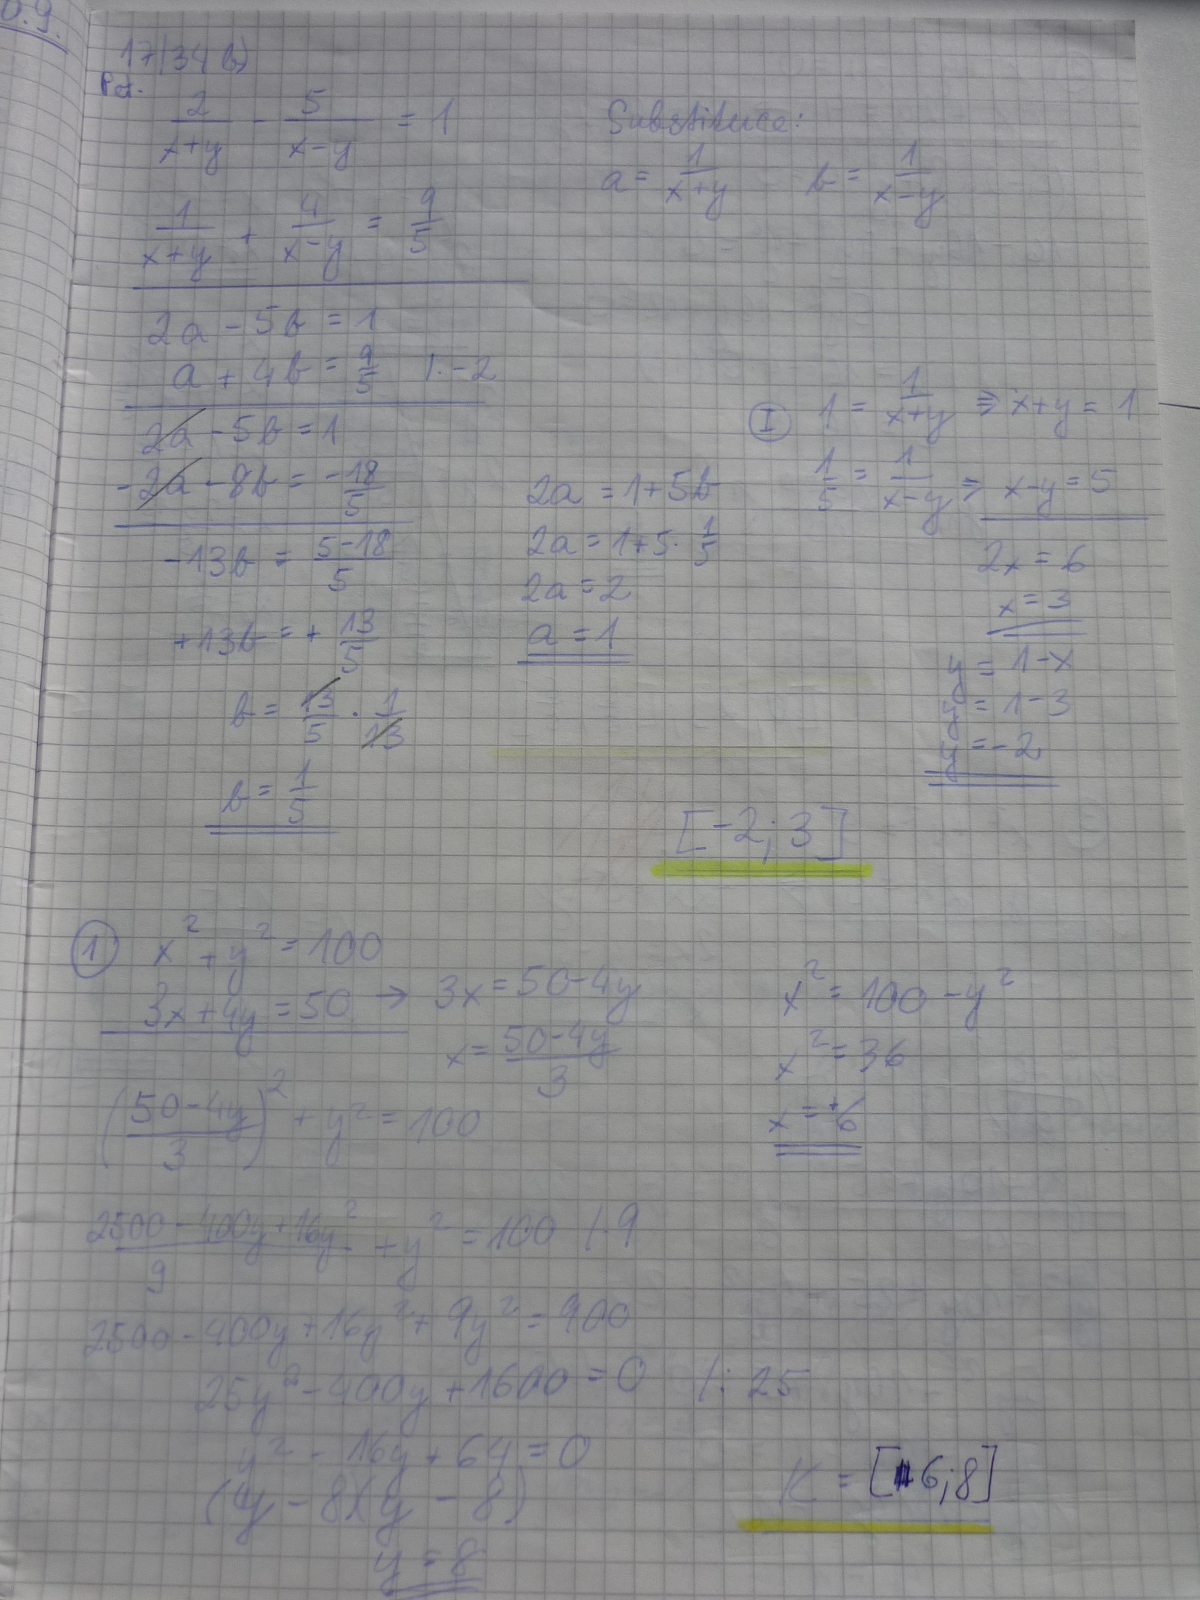 0.9.
17/34 b)
2/(x+y) - 5/(x-y) = 1
1/(x+y) + 4/(x-y) = 9/5
Substituce:
a = 1/(x+y) b = 1/(x-y)
2a - 5b = 1
a + 4b = 9/5 /· -2
2a - 5b = 1
-2a - 8b = -18/5
-13b = (5-18)/5
+13b = + 13/5
b = 13/5 · 1/13
b = 1/5
2a = 1+5b
2a = 1+5· 1/5
2a = 2
a = 1
I 1 = 1/(x+y) ⇒ x+y = 1
1/5 = 1/(x-y) ⇒ x-y = 5
2x = 6
x = 3
y = 1-x
y = 1-3
y = -2
[-2; 3]
1 x² + y² = 100
3x + 4y = 50 → 3x = 50-4y
x = (50-4y)/3
((50-4y)/3)² + y² = 100
(2500 - 400y + 16y²)/9 + y² = 100 /·9
2500 - 400y + 16y² + 9y² = 900
25y² - 400y + 1600 = 0 /: 25
y² - 16y + 64 = 0
(y - 8)(y - 8)
y = 8
x² = 100 - y²
x² = 36
x = 6
K = [6; 8]